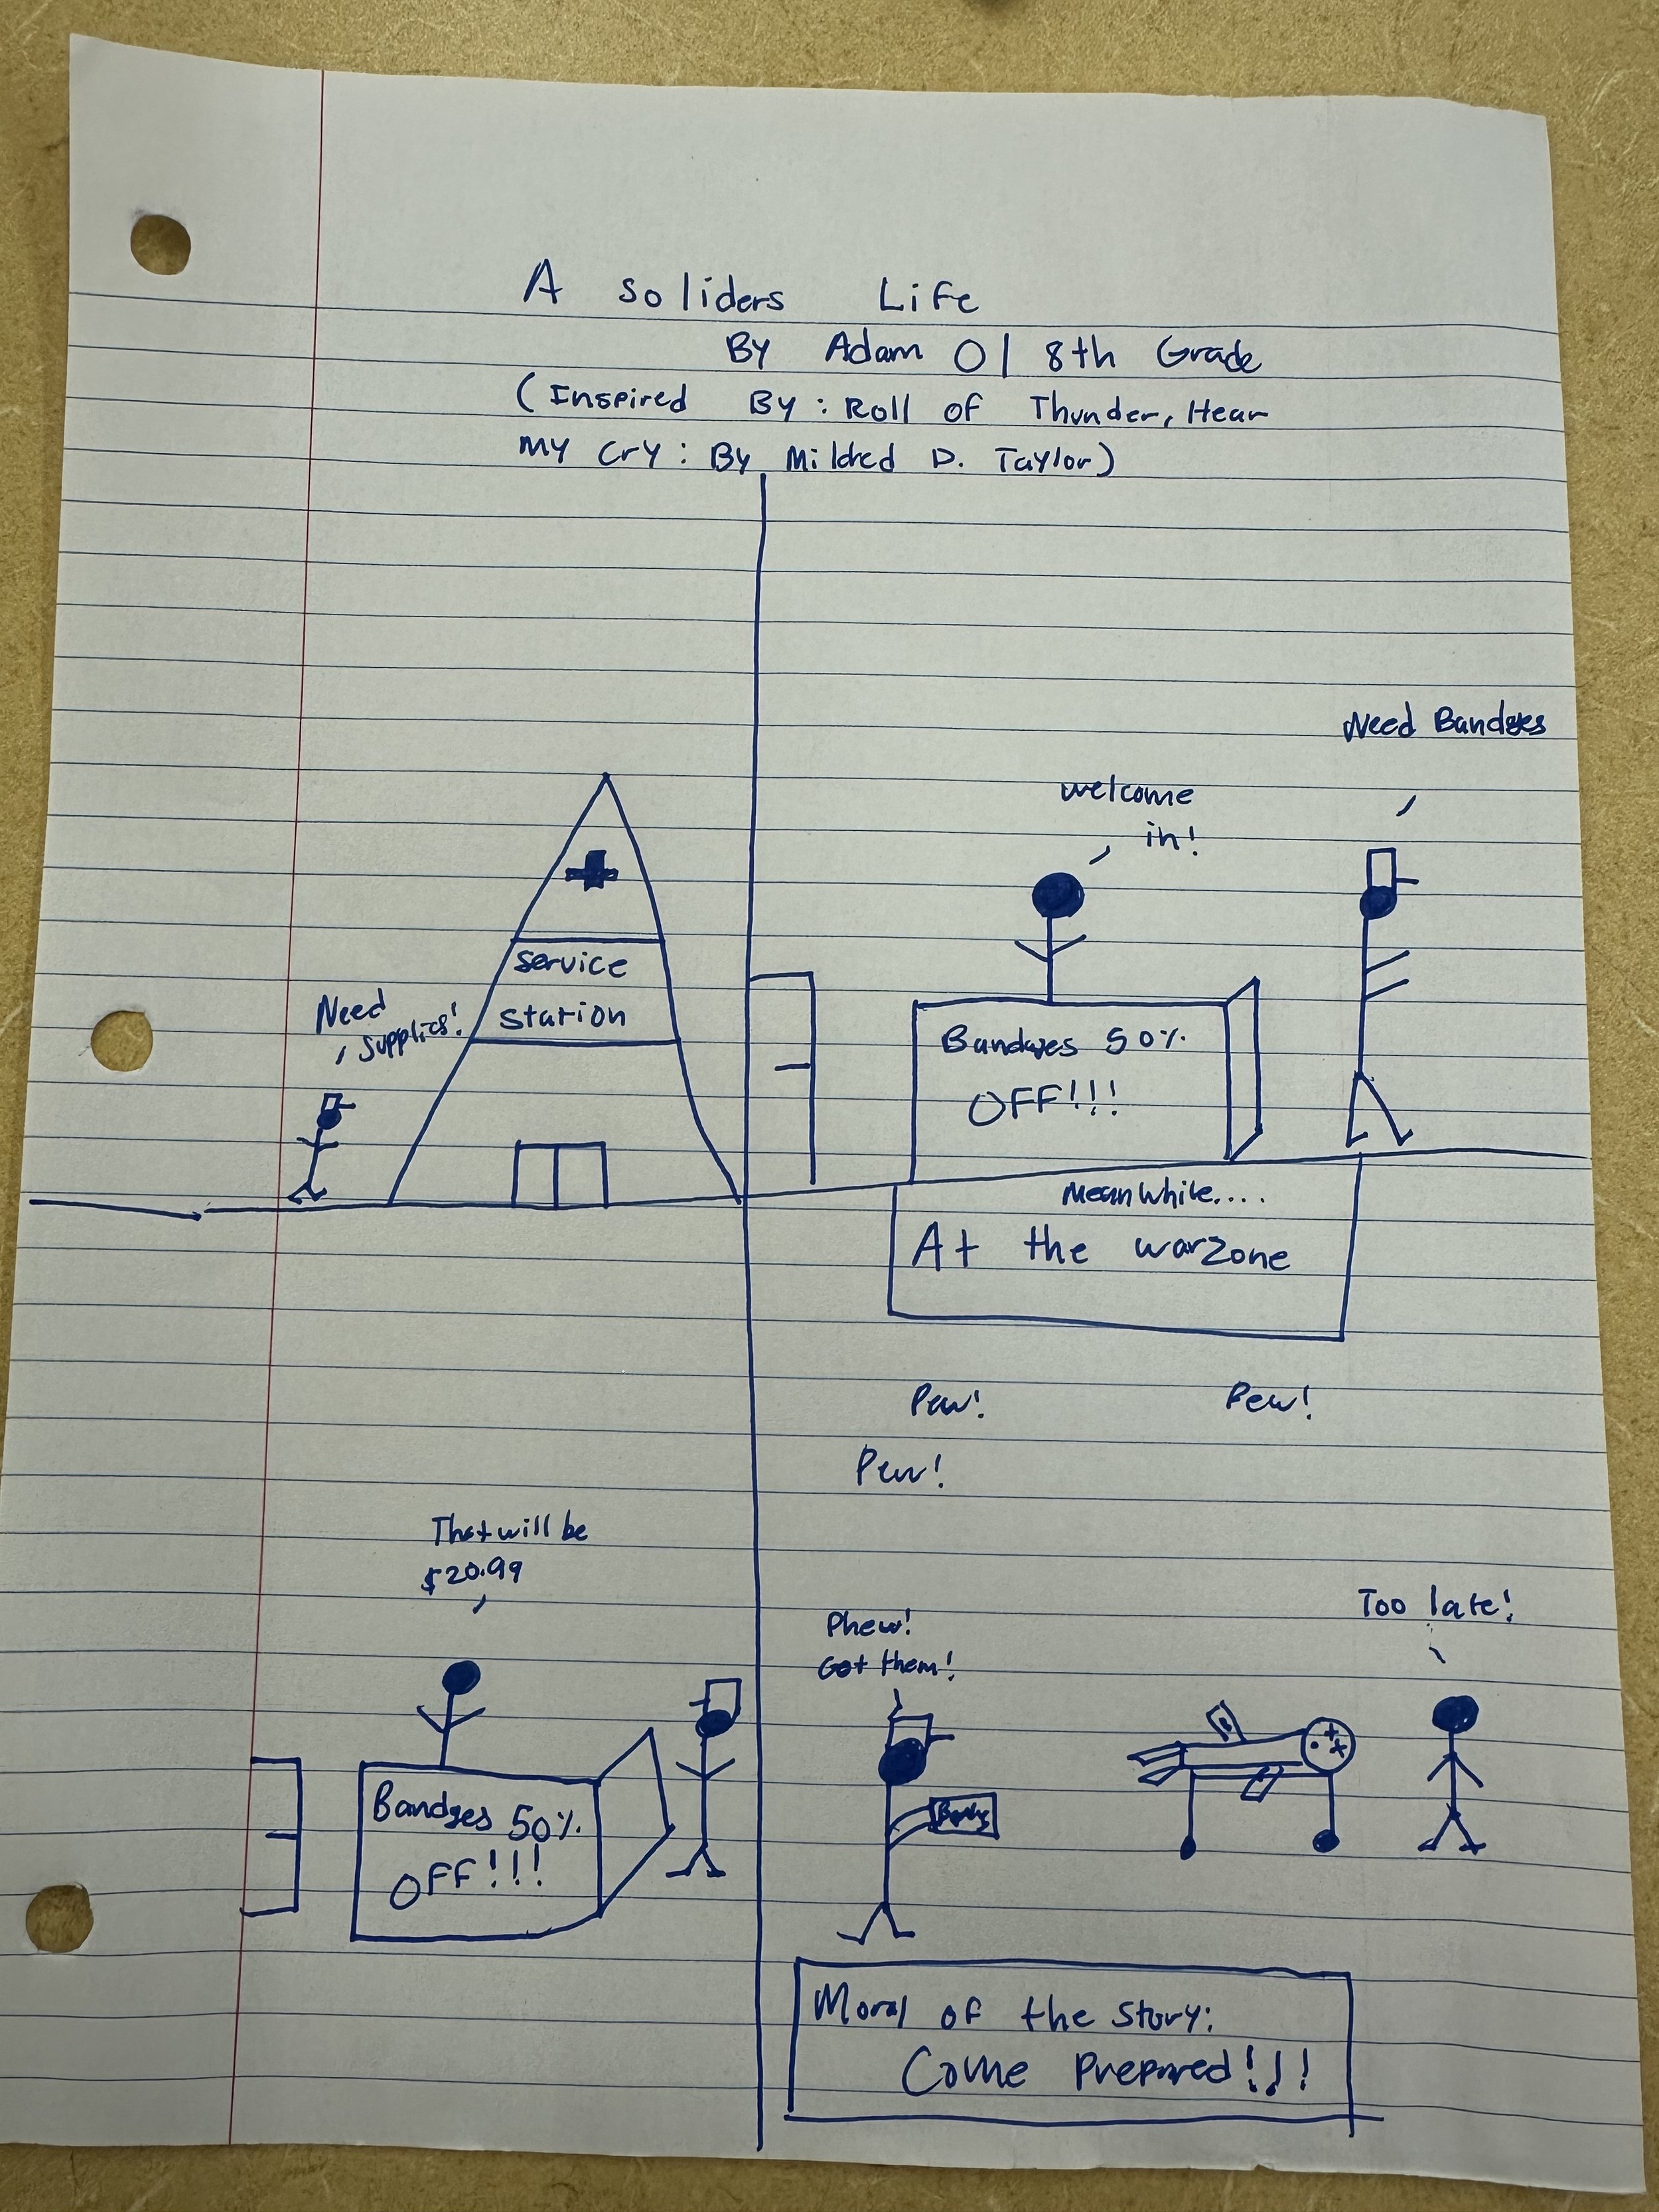 A soliders Life
By Adam O | 8th Grade
(Inspired By: Roll of Thunder, Hear
My Cry: By Mildred D. Taylor)
Need
supplies!
service
station
welcome
in!
Need Bandges
Bandges 50%
OFF!!!
Meanwhile....
At the warzone
Pew!
Pew!
Pew!
That will be
$20.99
Bandges 50%
OFF!!!
Phew!
Got them!
Too late!
Moral of the Story:
Come Prepared!!!